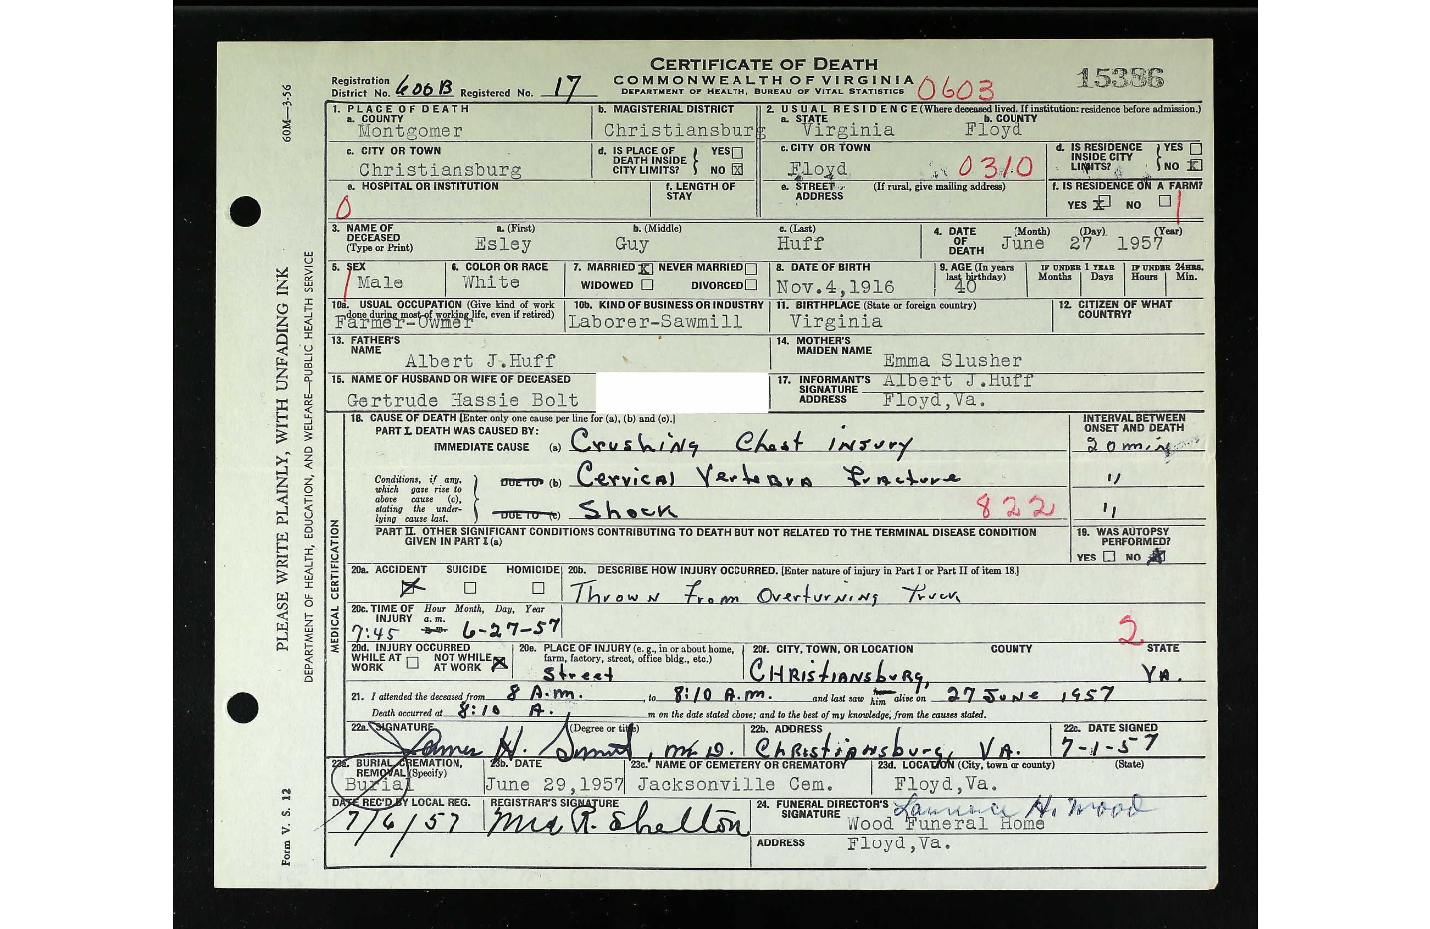 CERTIFICATE OF DEATH
COMMONWEALTH OF VIRGINIA
DEPARTMENT OF HEALTH, BUREAU OF VITAL STATISTICS
0603
15386
Registration District No. 600B Registered No. 17
60M—3-56
PLEASE WRITE PLAINLY, WITH UNFADING INK
DEPARTMENT OF HEALTH, EDUCATION, AND WELFARE—PUBLIC HEALTH SERVICE
Form V. S. 12
1. PLACE OF DEATH
a. COUNTY
Montgomer
b. MAGISTERIAL DISTRICT
Christiansburg
2. USUAL RESIDENCE (Where deceased lived. If institution: residence before admission.)
a. STATE
Virginia
b. COUNTY
Floyd
c. CITY OR TOWN
Christiansburg
d. IS PLACE OF DEATH INSIDE CITY LIMITS? YES NO X
c. CITY OR TOWN
Floyd
0310
d. IS RESIDENCE INSIDE CITY LIMITS? YES NO X
e. HOSPITAL OR INSTITUTION
0
f. LENGTH OF STAY
e. STREET ADDRESS (If rural, give mailing address)
f. IS RESIDENCE ON A FARM?
YES X NO
1
3. NAME OF DECEASED (Type or Print)
a. (First) b. (Middle) c. (Last)
Esley Guy Huff
4. DATE OF DEATH (Month) (Day) (Year)
June 27 1957
5. SEX
Male
6. COLOR OR RACE
White
7. MARRIED X NEVER MARRIED
WIDOWED DIVORCED
8. DATE OF BIRTH
Nov.4,1916
9. AGE (In years last birthday)
40
IF UNDER 1 YEAR
Months Days
IF UNDER 24 HRS.
Hours Min.
10a. USUAL OCCUPATION (Give kind of work done during most of working life, even if retired)
Farmer-Owner
10b. KIND OF BUSINESS OR INDUSTRY
Laborer-Sawmill
11. BIRTHPLACE (State or foreign country)
Virginia
12. CITIZEN OF WHAT COUNTRY?
13. FATHER'S NAME
Albert J.Huff
14. MOTHER'S MAIDEN NAME
Emma Slusher
15. NAME OF HUSBAND OR WIFE OF DECEASED
Gertrude Hassie Bolt
17. INFORMANT'S SIGNATURE Albert J.Huff
ADDRESS Floyd,Va.
MEDICAL CERTIFICATION
18. CAUSE OF DEATH [Enter only one cause per line for (a), (b) and (c).]
PART I. DEATH WAS CAUSED BY:
IMMEDIATE CAUSE (a) Crushing Chest injury
INTERVAL BETWEEN ONSET AND DEATH
20 min
Conditions, if any, which gave rise to above cause (c), stating the underlying cause last.
DUE TO (b) Cervical Vertebra Fracture
"
DUE TO (c) Shock
822
"
PART II. OTHER SIGNIFICANT CONDITIONS CONTRIBUTING TO DEATH BUT NOT RELATED TO THE TERMINAL DISEASE CONDITION GIVEN IN PART I (a)
19. WAS AUTOPSY PERFORMED?
YES NO X
20a. ACCIDENT SUICIDE HOMICIDE
X
20b. DESCRIBE HOW INJURY OCCURRED. [Enter nature of injury in Part I or Part II of item 18.]
Thrown From Overturning Truck
20c. TIME OF INJURY Hour Month, Day, Year
7:45 a.m. p.m. 6-27-57
2
20d. INJURY OCCURRED
WHILE AT WORK NOT WHILE AT WORK X
20e. PLACE OF INJURY (e. g., in or about home, farm, factory, street, office bldg., etc.)
Street
20f. CITY, TOWN, OR LOCATION COUNTY STATE
Christiansburg, VA.
21. I attended the deceased from 8 A.m. to 8:10 A.m. and last saw him alive on 27 June 1957
Death occurred at 8:10 A. m on the date stated above; and to the best of my knowledge, from the causes stated.
22a. SIGNATURE (Degree or title)
James H. Smith, M.D.
22b. ADDRESS
Christiansburg, VA.
22c. DATE SIGNED
7-1-57
23a. BURIAL, CREMATION, REMOVAL (Specify)
Burial
23b. DATE
June 29,1957
23c. NAME OF CEMETERY OR CREMATORY
Jacksonville Cem.
23d. LOCATION (City, town or county) (State)
Floyd,Va.
DATE REC'D BY LOCAL REG.
7/6/57
REGISTRAR'S SIGNATURE
Mrs R. Shelton
24. FUNERAL DIRECTOR'S SIGNATURE Lawrence H. Wood
Wood Funeral Home
ADDRESS Floyd,Va.